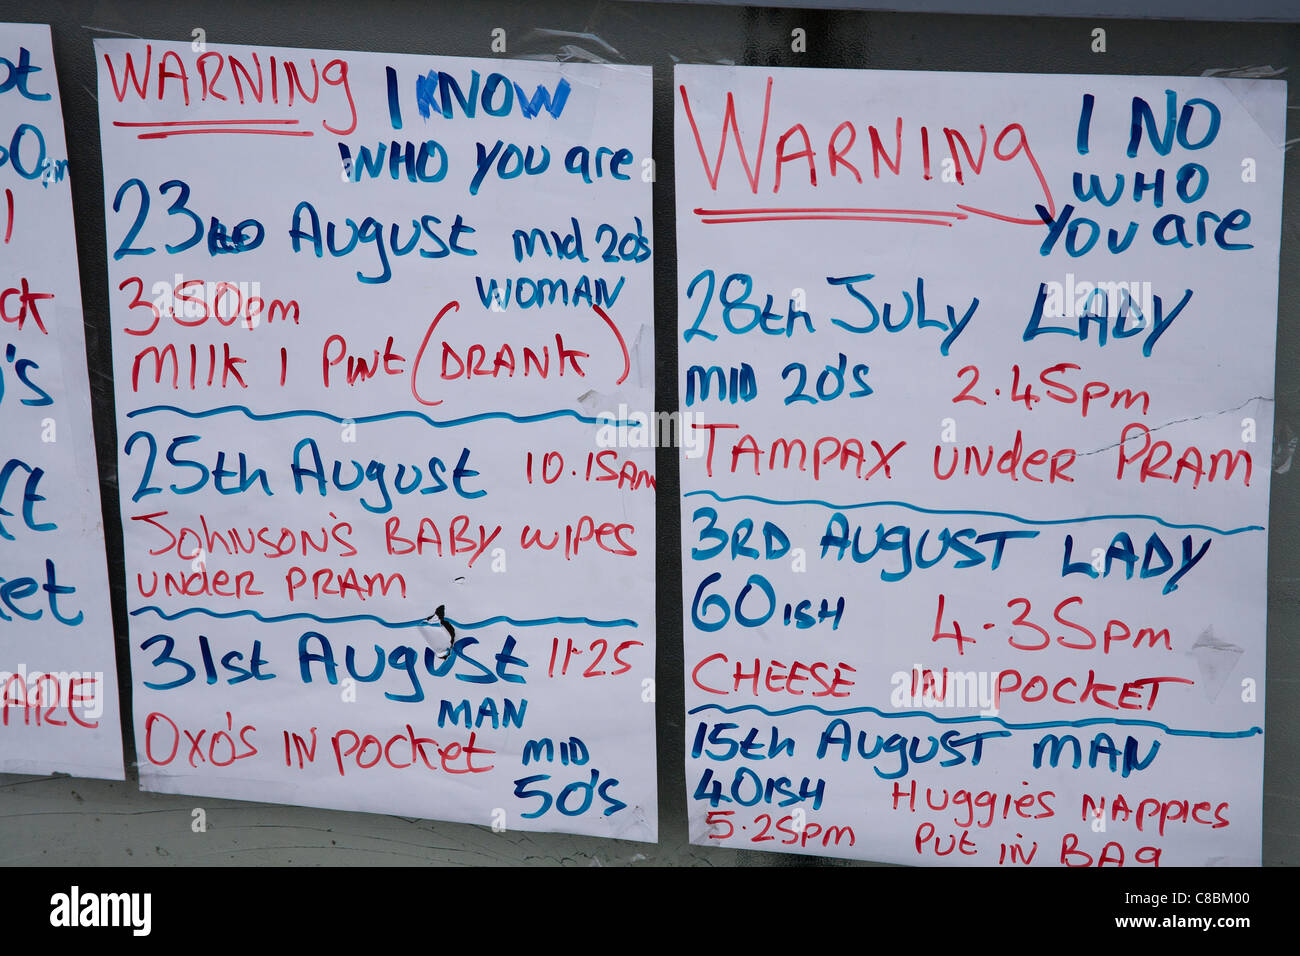 ARE
WARNING I KNOW
WHO YOU are
23rd August mid 20's
WOMAN
3.50pm
Milk 1 Pint (DRANK)
25th August 10.15am
Johnson's BABY wipes
under PRAM
31st August 11.25
MAN
Oxo's in pocket MID
50's
WARNING I NO
WHO
You are
28th July LADY
MID 20's 2.45pm
TAMPAX under PRAM
3RD August LADY
60ish 4.35pm
CHEESE IN POCKET
15th August MAN
40ISH Huggies NAPPIES
5.25pm Put in BAG
alamy
www.alamy.com
Image ID: C8BM00